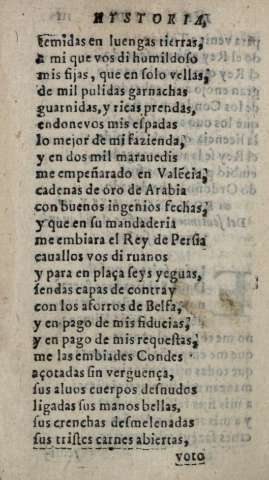 HYSTORIA,
temidas en luengas tierras,
a mi que vos di humildoso
mis fijas, que en solo vellas,
de mil pulidas garnachas
guarnidas, y ricas prendas,
endonevos mis espadas
lo mejor de mi fazienda,
y en dos mil marauedis
me empeñarado en Valẽcia,
cadenas de oro de Arabia
con buenos ingenios fechas,
y que en su mandaderia
me embiara el Rey de Persia
cauallos vos di ruanos
y para en plaça seys yeguas,
sendas capas de contray
con los aforros de Belfa,
y en pago de mis fiducias,
y en pago de mis requestas,
me las embiades Condes
açotadas sin verguença,
sus aluos cuerpos desnudos
ligadas sus manos bellas,
sus crenchas desmelenadas
sus tristes carnes abiertas,
voto